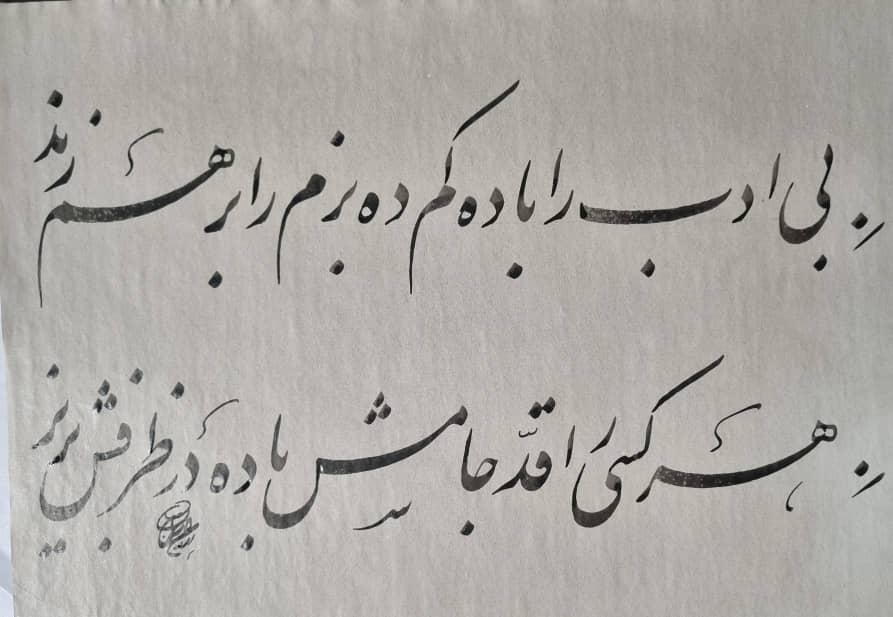 بی ادب را باده کم ده بزم را بر هم زند
هر کسی را قدّ جامش باده در ظرفش بریز